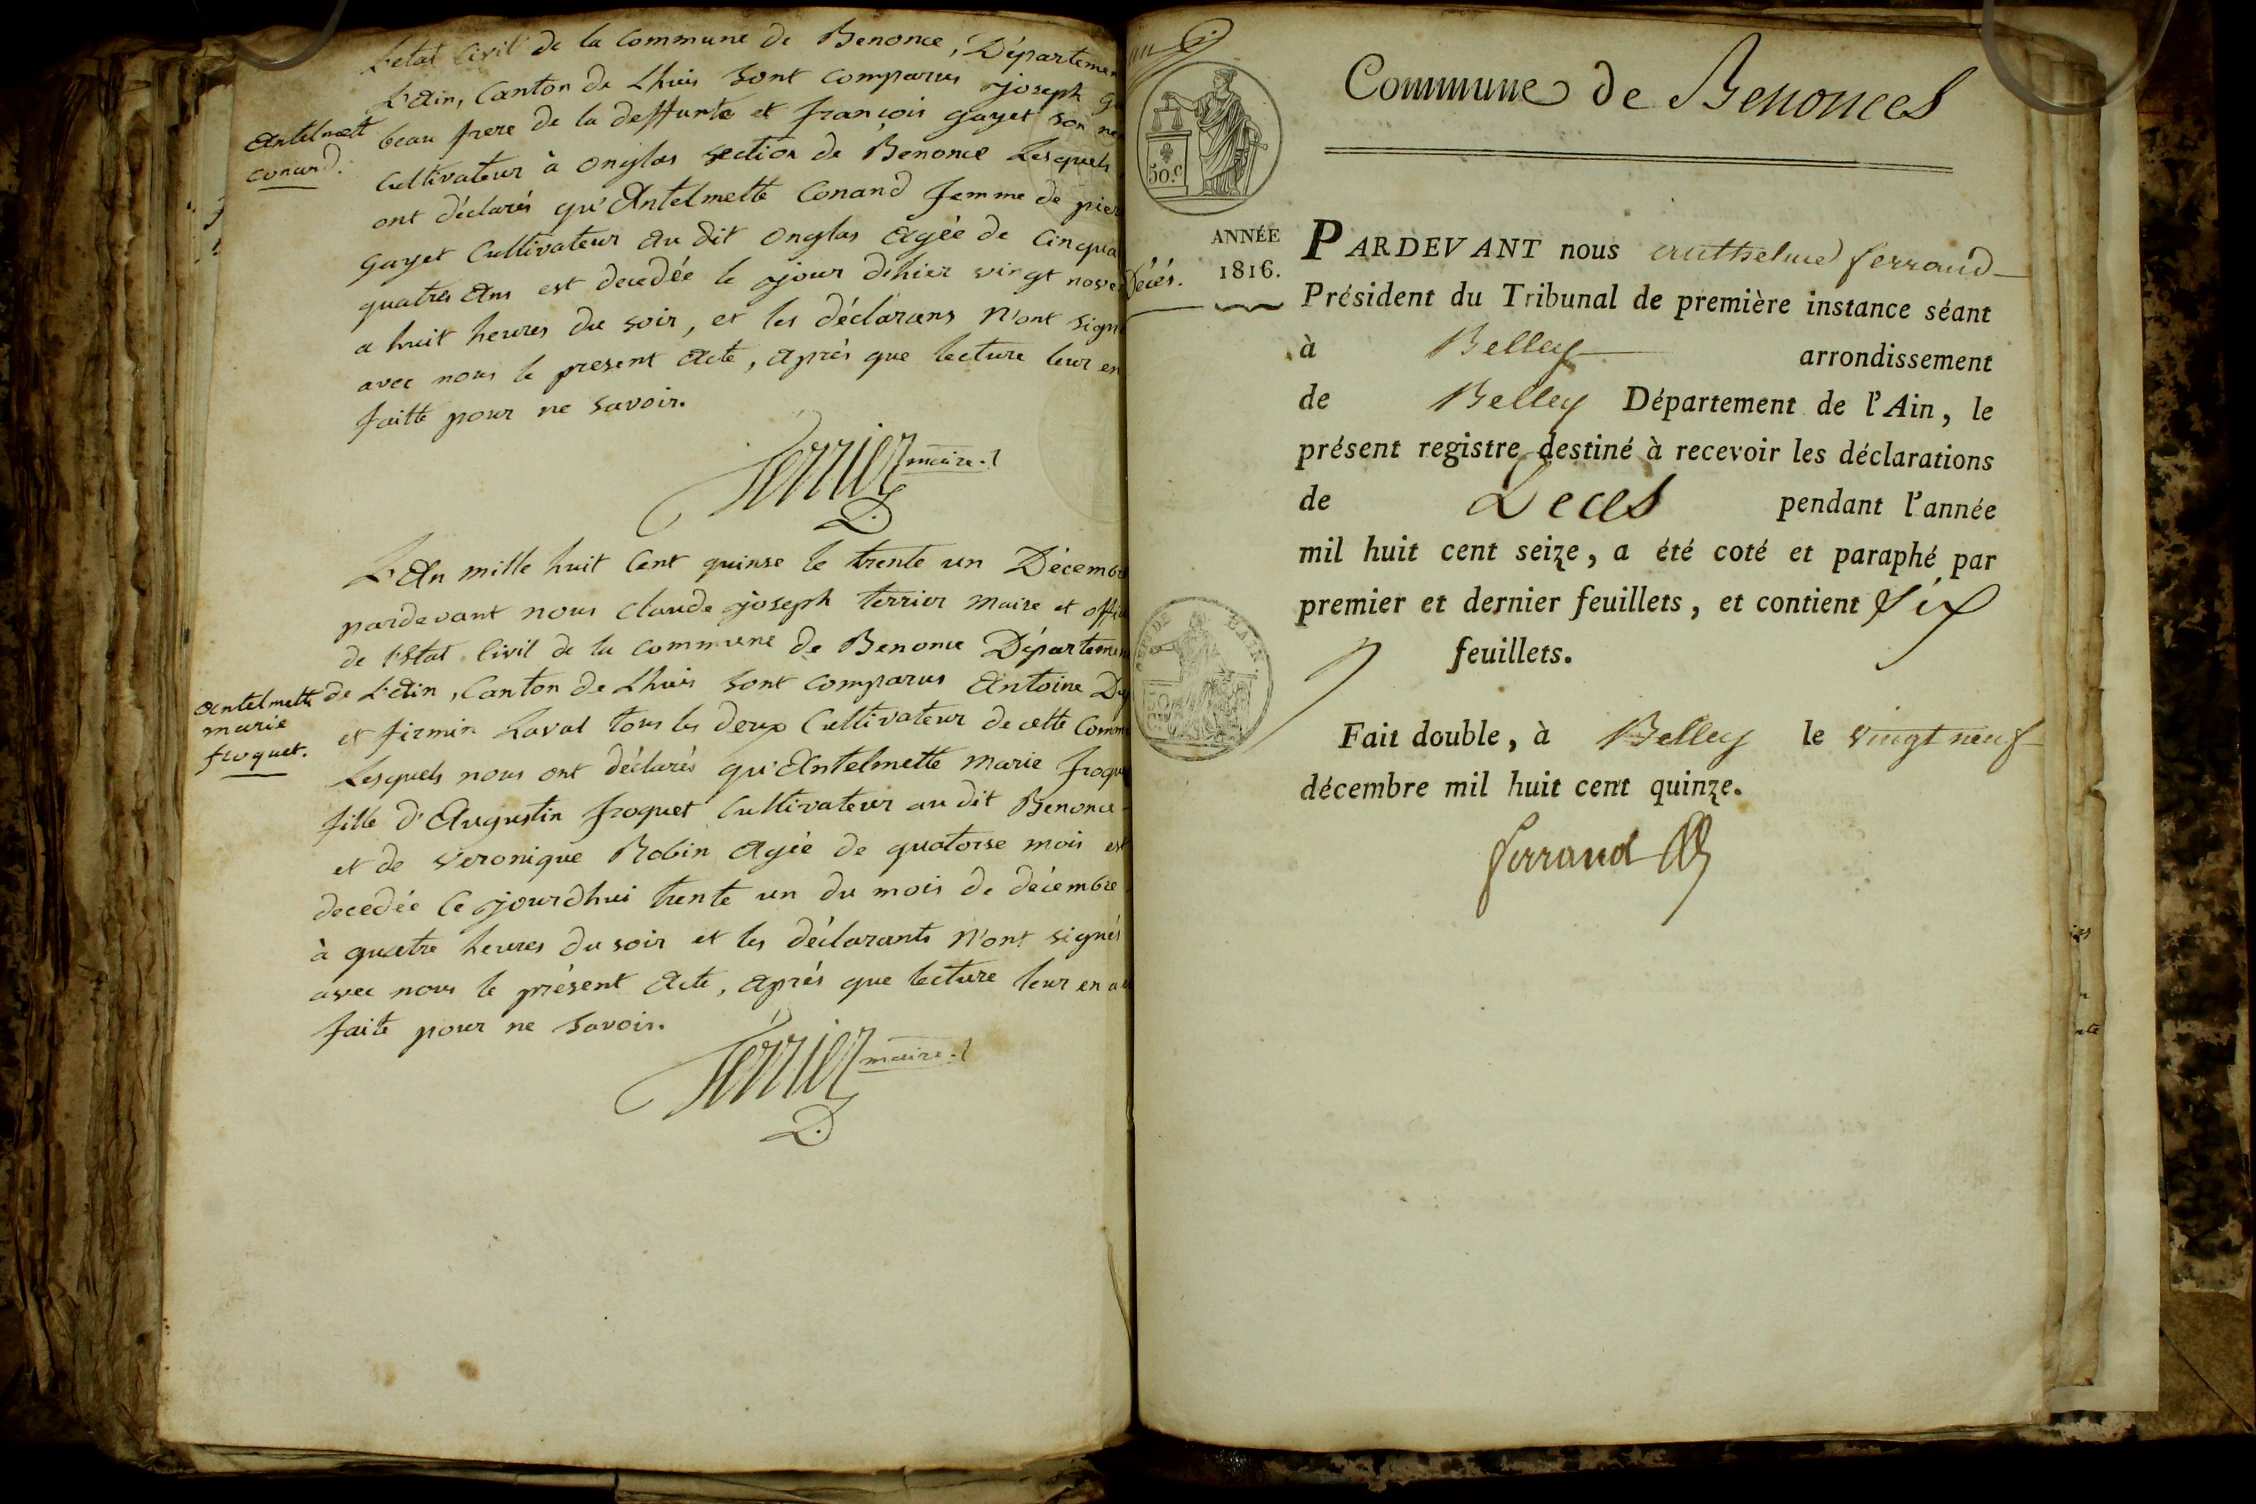 L'etat Civil de la Commune de Benonce, Départemen
L'Ain, Canton de Lhuis Sont Comparus joseph
Antelmett
conand.
beau frere de la deffunte et françois gayet son ne
Cultivateur à onglas section de Benonce Lesquels
ont déclarés qu'Antelmette Conand femme de pier
gayet Cultivateur au dit onglas Agée de Cinqua
quatres Ans est decedée le jour dhier vingt nove
a huit heures du soir, et les déclarans N'ont sign
avec nous le present Acte, Après que lecture leur en
faitte pour ne Savoir.
Terrier maire
L'An mille huit Cent quinse le trente un Décemb
pardevant nous claude joseph terrier Maire et offi
de l'Etat Civil de la Commune de Benonce Départemen
Antelmette
marie
froquet.
de L'Ain, Canton de Lhuis Sont Comparus Antoine
et firmin Laval tous les deux Cultivateur de cette Comm
Lesquels nous ont déclarés qu'Antelmette Marie froqu
fille d'Augustin froquet Cultivateur au dit Benonce
et de veronique Robin Agée de quatorse mois est
decedée Ce jourdhui trente un du mois de décembre
à quatre heures du soir et les déclarants N'ont signés
avec nous le présent Acte, Après que lecture leur en a
faite pour ne Savoir.
Terrier maire
Commune de Benonces
50.c
ANNÉE
1816.
Décés.
PARDEVANT nous Anthelme ferrand
Président du Tribunal de première instance séant
à Belley arrondissement
de Belley Département de l'Ain, le
présent registre destiné à recevoir les déclarations
de Deces pendant l'année
mil huit cent seize, a été coté et paraphé par
premier et dernier feuillets, et contient Six
feuillets.
Fait double, à Belley le vingt neuf
décembre mil huit cent quinze.
ferrand